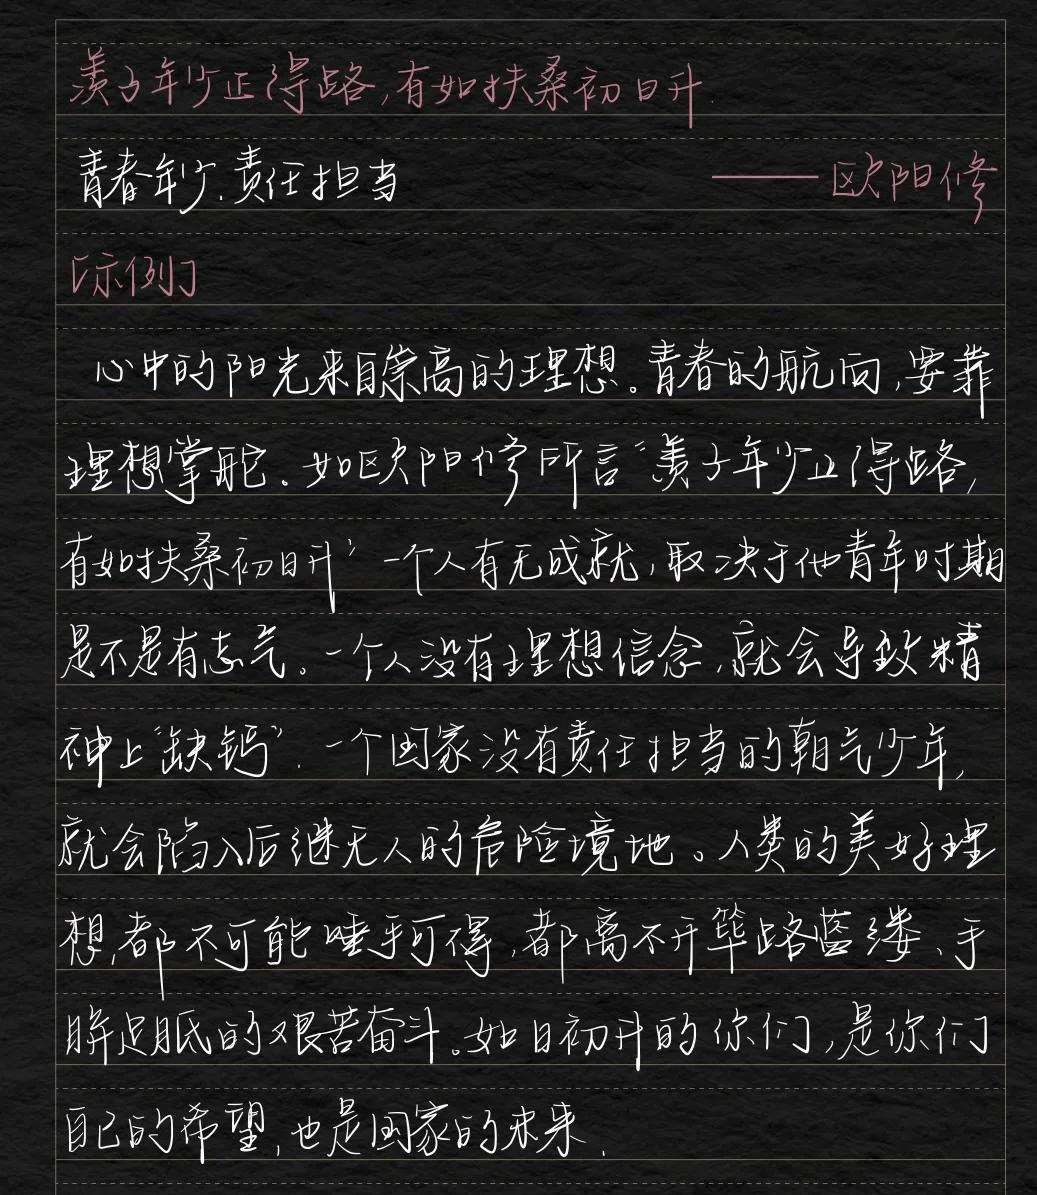 羡子年少正得路,有如扶桑初日升.
青春年少.责任担当 ——欧阳修
「示例」
心中的阳光来自崇高的理想。青春的航向,要靠
理想掌舵。如欧阳修所言“羡子年少正得路,
有如扶桑初日升” 一个人有无成就,取决于他青年时期
是不是有志气。一个人没有理想信念,就会导致精
神上“缺钙”.一个国家没有责任担当的朝气少年,
就会陷入后继无人的危险境地。人类的美好理
想,都不可能唾手可得,都离不开筚路蓝缕、手
胼足胝的艰苦奋斗。如日初升的你们,是你们
自己的希望,也是国家的未来.